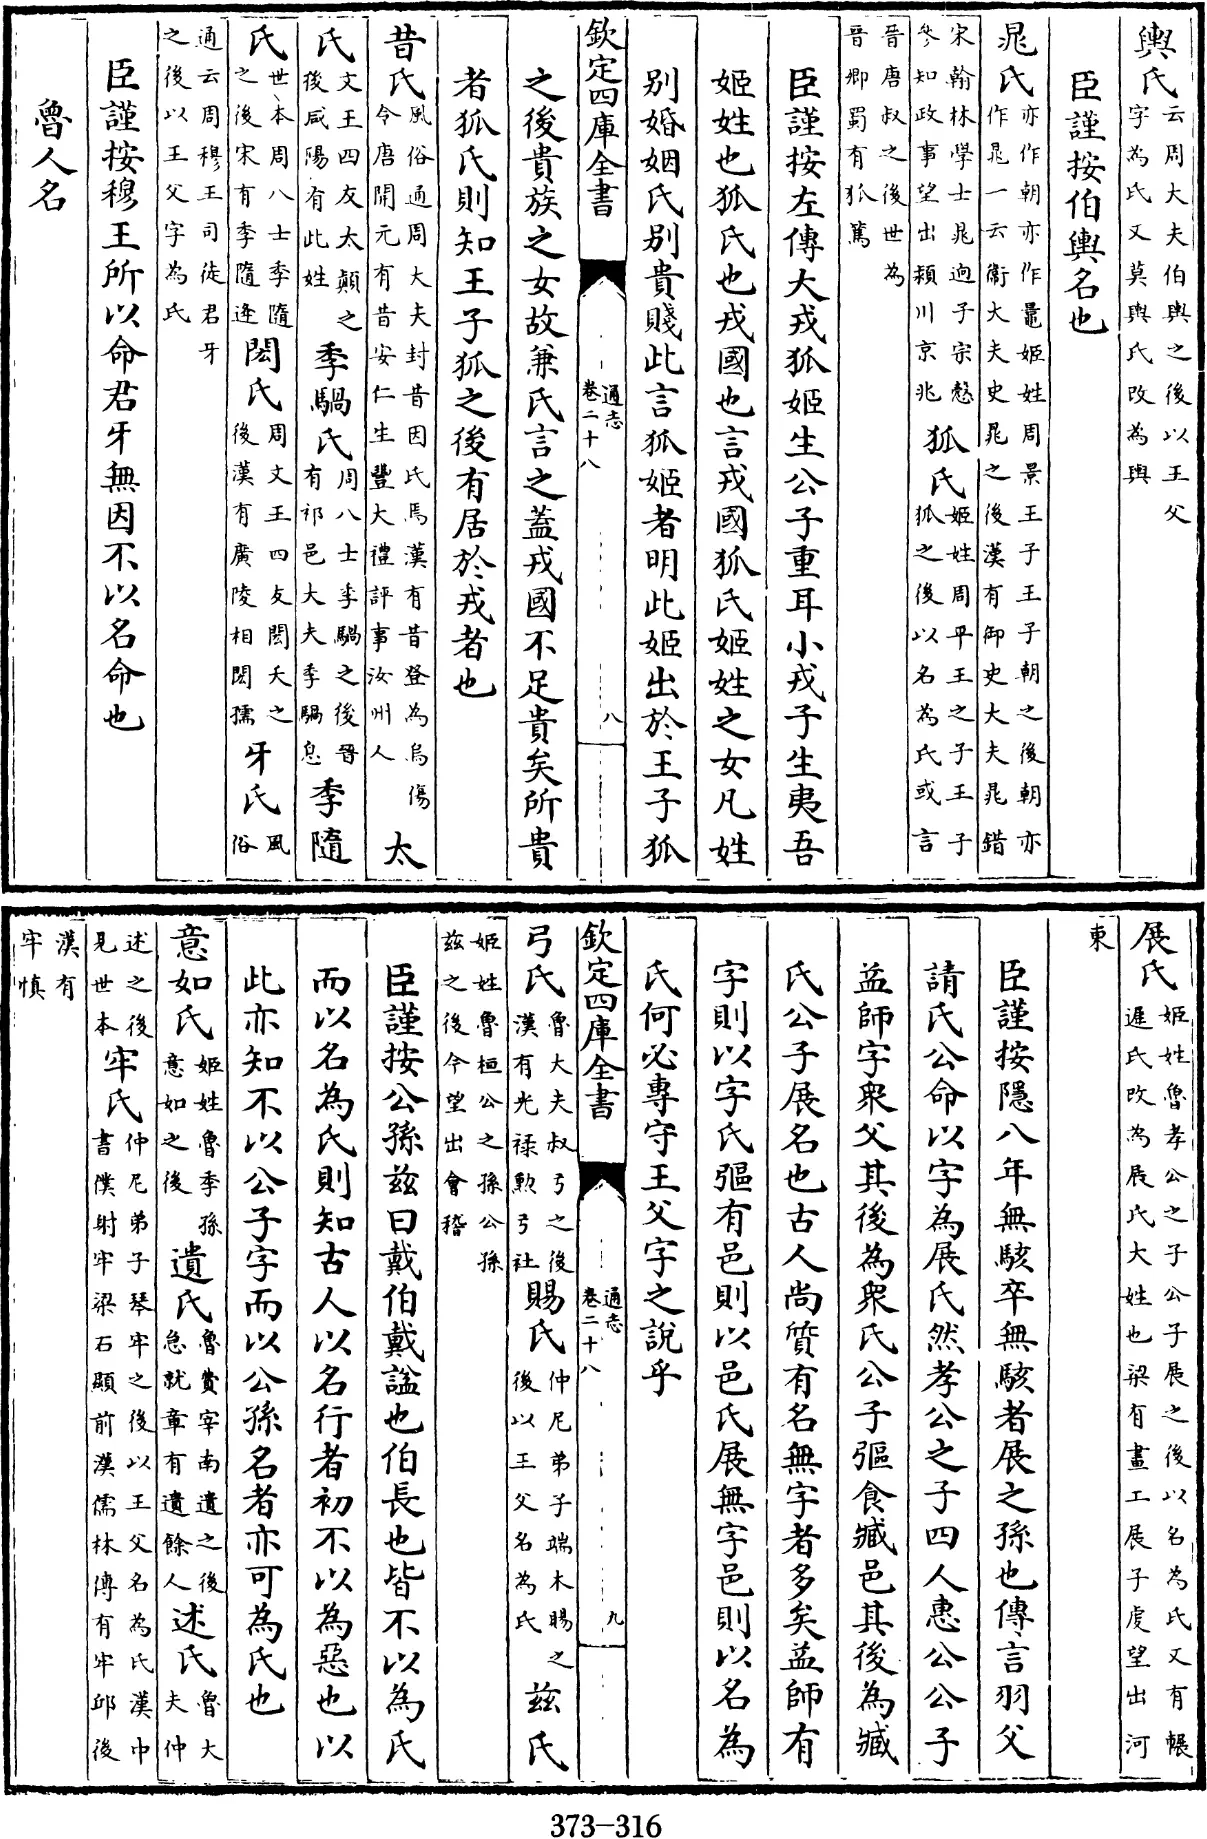 輿氏云周大夫伯輿之後以王父字為氏又莫輿氏改為輿
臣謹按伯輿名也
晁氏亦作朝亦作鼂姬姓周景王子王子朝之後朝亦作晁一云衞大夫史晁之後漢有御史大夫晁錯
宋翰林學士晁迥子宗慤參知政事望出潁川京兆 狐氏姬姓周平王之子王子狐之後以名為氏或言
晉唐叔之後世為晉卿蜀有狐篤
臣謹按左傳大戎狐姬生公子重耳小戎子生夷吾
姬姓也狐氏也戎國也言戎國狐氏姬姓之女凡姓
别婚姻氏别貴賤此言狐姬者明此姬出於王子狐
欽定四庫全書 通志卷二十八 八
之後貴族之女故兼氏言之蓋戎國不足貴矣所貴
者狐氏則知王子狐之後有居於戎者也
昔氏風俗通周大夫封昔因氏焉漢有昔登為烏傷令唐開元有昔安仁生豐大禮評事汝州人 太
氏文王四友太顛之後咸陽有此姓 季騧氏周八士季騧之後晉有祁邑大夫季騧息 季隨
氏世本周八士季隨之後宋有季隨逢 閎氏周文王四友閎夭之後漢有廣陵相閎孺 牙氏風俗
通云周穆王司徒君牙之後以王父字為氏
臣謹按穆王所以命君牙無因不以名命也
魯人名
展氏姬姓魯孝公之子公子展之後以名為氏又有輾遲氏改為展氏大姓也梁有畫工展子虔望出河
東
臣謹按隱八年無駭卒無駭者展之孫也傳言羽父
請氏公命以字為展氏然孝公之子四人惠公公子
益師字衆父其後為衆氏公子彄食臧邑其後為臧
氏公子展名也古人尚質有名無字者多矣益師有
字則以字氏彄有邑則以邑氏展無字邑則以名為
氏何必專守王父字之說乎
欽定四庫全書 通志卷二十八 九
弓氏魯大夫叔弓之後漢有光祿勲弓社 賜氏仲尼弟子端木賜之後以王父名為氏 兹氏
姬姓魯桓公之孫公孫兹之後今望出會稽
臣謹按公孫兹曰戴伯戴謚也伯長也皆不以為氏
而以名為氏則知古人以名行者初不以為惡也以
此亦知不以公子字而以公孫名者亦可為氏也
意如氏姬姓魯季孫意如之後 遺氏魯費宰南遺之後急就章有遺餘人 述氏魯大夫仲
述之後見世本 牢氏仲尼弟子琴牢之後以王父名為氏漢中書僕射牢梁石顯前漢儒林傳有牢邱後
漢有牢慎
373-316